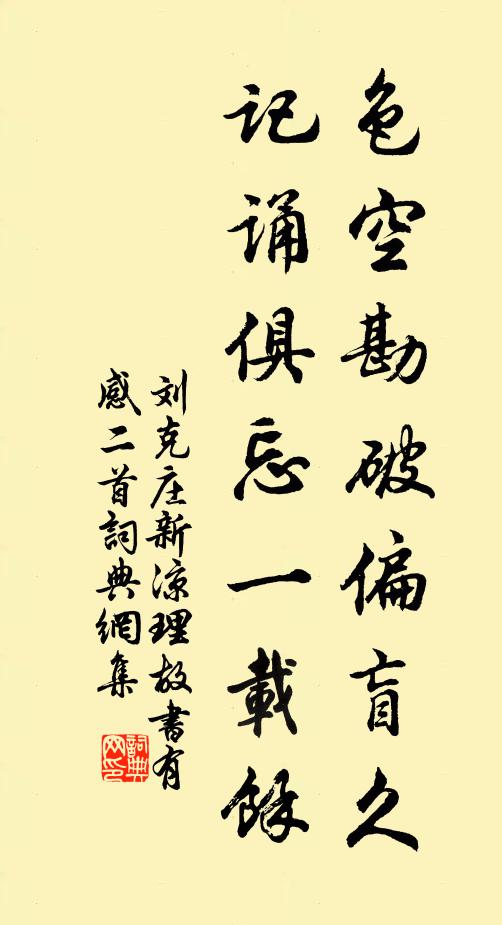 色空勘破偏盲久
记诵俱忘一載餘
刘克庄新涼理故書有
感二首詞典網集
詞典
网印